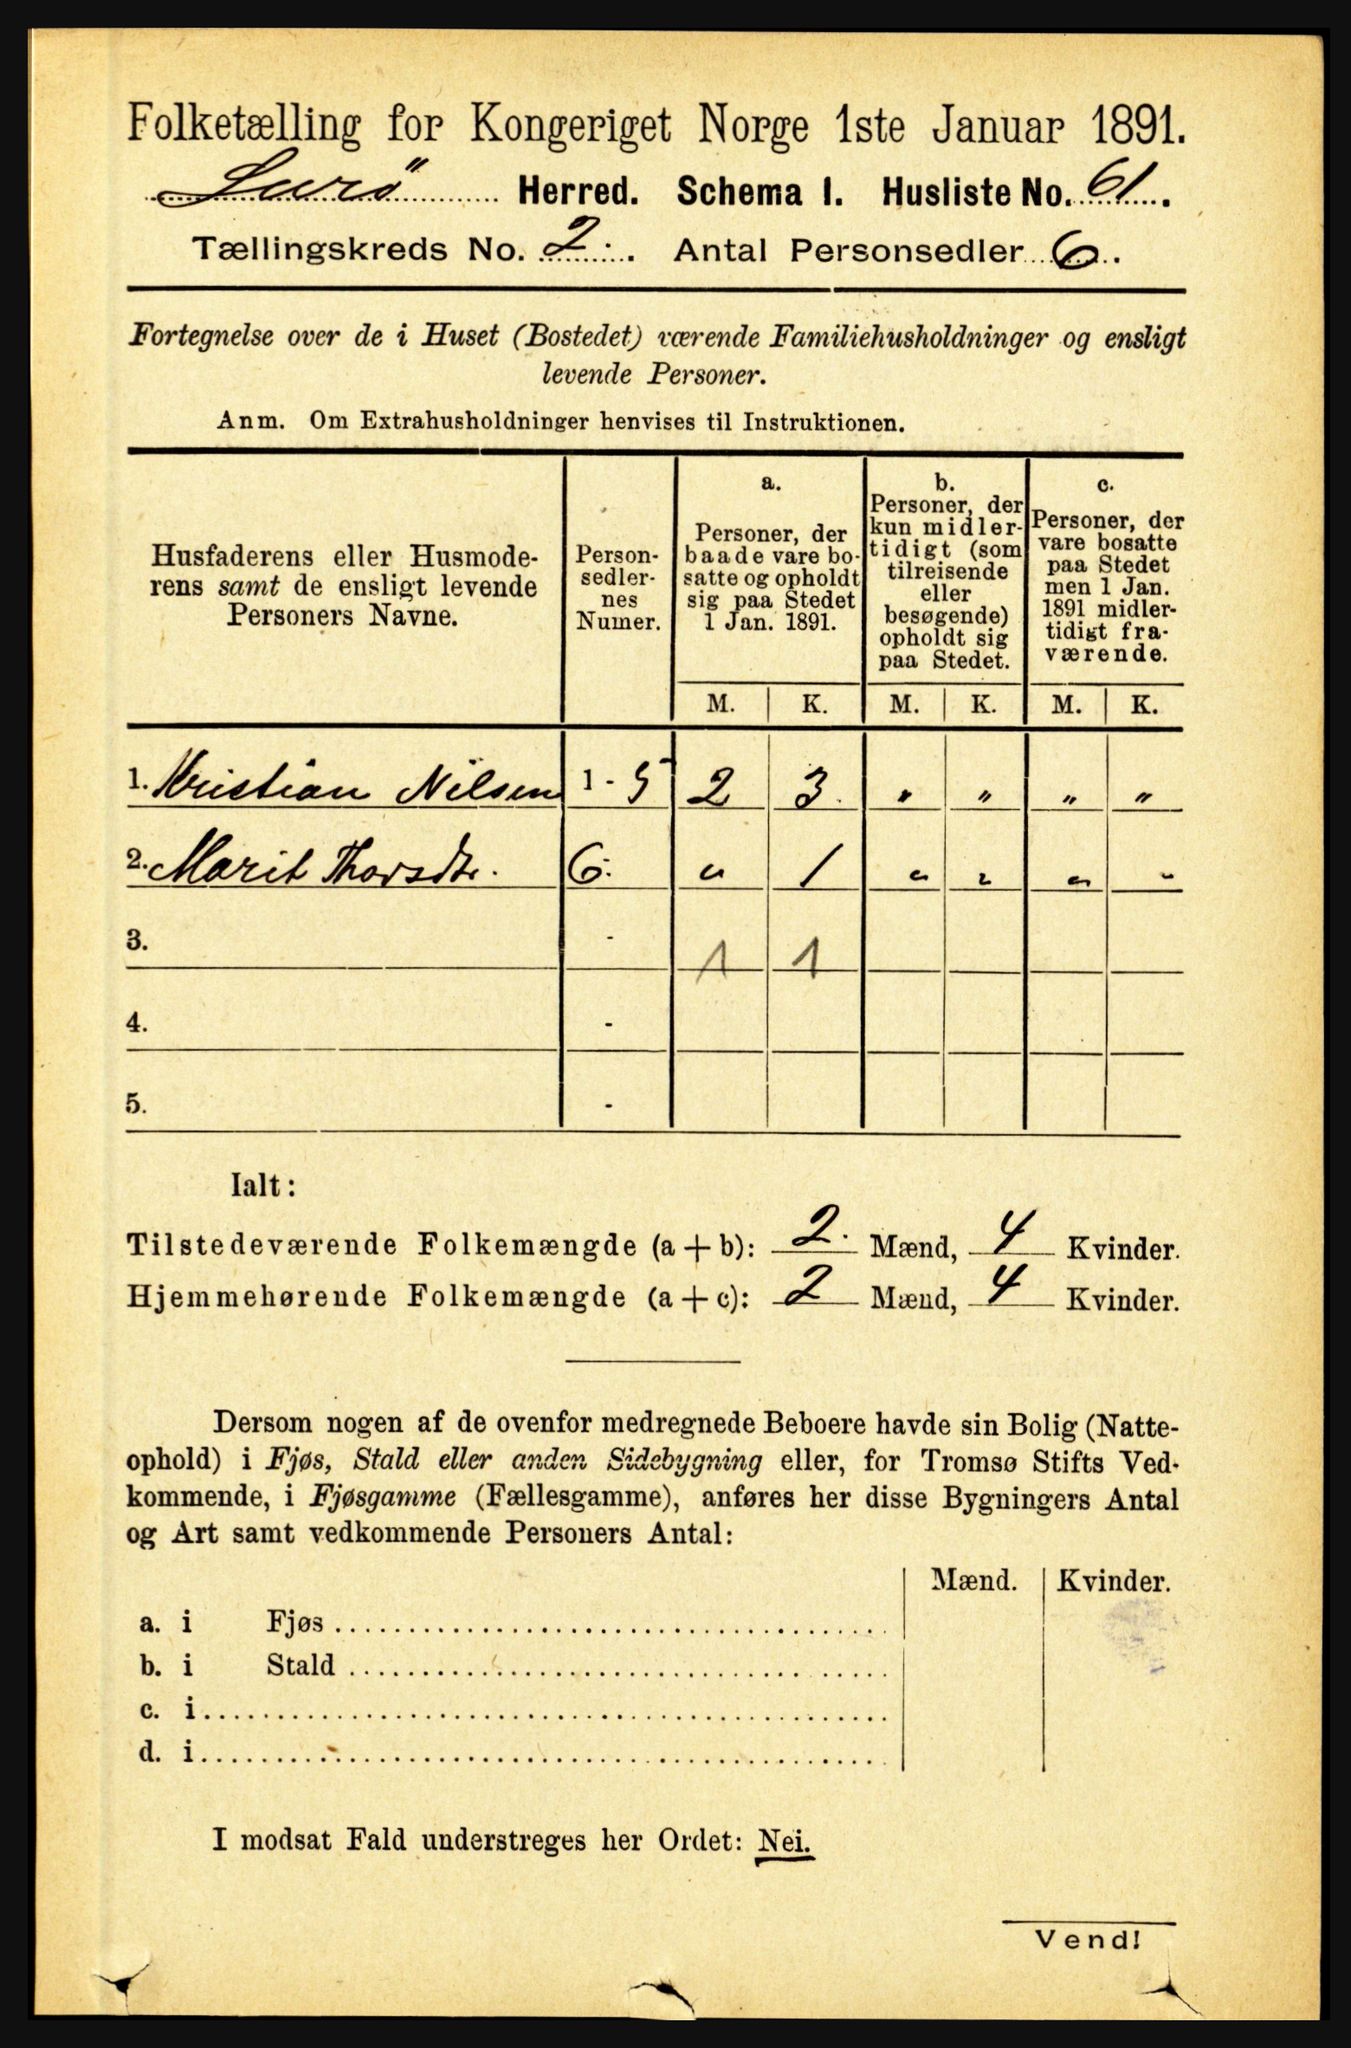 Folketælling for Kongeriget Norge 1ste Januar 1891.
Lurö Herred. Schema I. Husliste No. 61.
Tællingskreds No. 2. Antal Personsedler 6.
Fortegnelse over de i Huset (Bostedet) værende Familiehusholdninger og ensligt
levende Personer.
Anm. Om Extrahusholdninger henvises til Instruktionen.
Husfaderens eller Husmode-
rens samt de ensligt levende
Personers Navne.
Person-
sedler-
nes
Numer.
a.
Personer, der
baade vare bo-
satte og opholdt
sig paa Stedet
1 Jan. 1891.
b.
Personer, der
kun midler-
tidigt (som
tilreisende
eller
besøgende)
opholdt sig
paa Stedet.
c.
Personer, der
vare bosatte
paa Stedet
men 1 Jan.
1891 midler-
tidigt fra-
værende.
M. K. M. K. M. K.
1. Kristian Nilsen 1 - 5 2 3. " " " "
2. Marit Thorsdtr. 6. " 1 " " " "
3. - 1 1
4. -
5. -
Ialt:
Tilstedeværende Folkemængde (a + b): 2. Mænd, 4 Kvinder.
Hjemmehørende Folkemængde (a + c): 2 Mænd, 4 Kvinder.
Dersom nogen af de ovenfor medregnede Beboere havde sin Bolig (Natte-
ophold) i Fjøs, Stald eller anden Sidebygning eller, for Tromsø Stifts Ved-
kommende, i Fjøsgamme (Fællesgamme), anføres her disse Bygningers Antal
og Art samt vedkommende Personers Antal:
Mænd. Kvinder.
a. i Fjøs
b. i Stald
c. i
d. i
I modsat Fald understreges her Ordet: Nei.
Vend!